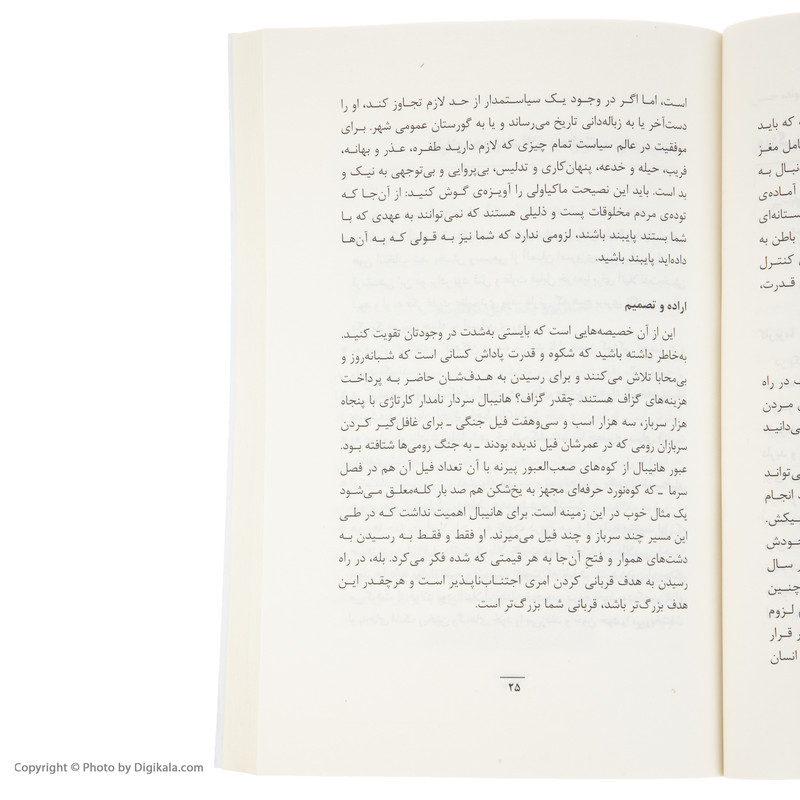 است، اما اگر در وجود یک سیاستمدار از حد لازم تجاوز کند، او را
دست‌آخر یا به زباله‌دانی تاریخ می‌رساند و یا به گورستان عمومی شهر. برای
موفقیت در عالم سیاست تمام چیزی که لازم دارید طفره، عذر و بهانه،
فریب، حیله و خدعه، پنهان‌کاری و تدلیس، بی‌پروایی و بی‌توجهی به نیک و
بد است. باید این نصیحت ماکیاولی را آویزه‌ی گوش کنید: از آن‌جا که
توده‌ی مردم مخلوقات پست و ذلیلی هستند که نمی‌توانند به عهدی که با
شما بستند پایبند باشند، لزومی ندارد که شما نیز به قولی که به آن‌ها
داده‌اید پایبند باشید.
اراده و تصمیم
این از آن خصیصه‌هایی است که بایستی به‌شدت در وجودتان تقویت کنید.
به‌خاطر داشته باشید که شکوه و قدرت پاداش کسانی است که شبانه‌روز و
بی‌محابا تلاش می‌کنند و برای رسیدن به هدف‌شان حاضر به پرداخت
هزینه‌های گزاف هستند. چقدر گزاف؟ هانیبال سردار نامدار کارتاژی با پنجاه
هزار سرباز، سه هزار اسب و سی‌وهفت فیل جنگی ـ برای غافل‌گیر کردن
سربازان رومی که در عمرشان فیل ندیده بودند ـ به جنگ رومی‌ها شتافته بود.
عبور هانیبال از کوه‌های صعب‌العبور پیرنه با آن تعداد فیل آن هم در فصل
سرما ـ که کوه‌نورد حرفه‌ای مجهز به یخ‌شکن هم صد بار کله‌معلق می‌شود
یک مثال خوب در این زمینه است. برای هانیبال اهمیت نداشت که در طی
این مسیر چند سرباز و چند فیل می‌میرند. او فقط و فقط به رسیدن به
دشت‌های هموار و فتح آن‌جا به هر قیمتی که شده فکر می‌کرد. بله، در راه
رسیدن به هدف قربانی کردن امری اجتناب‌ناپذیر است و هرچقدر این
هدف بزرگ‌تر باشد، قربانی شما بزرگ‌تر است.
۲۵
که باید
مغز
به
آماده‌ی
باطن به
کنترل
قدرت،
در راه
مردن
انجام
سال
لزوم
قرار
انسان
Copyright © Photo by Digikala.com